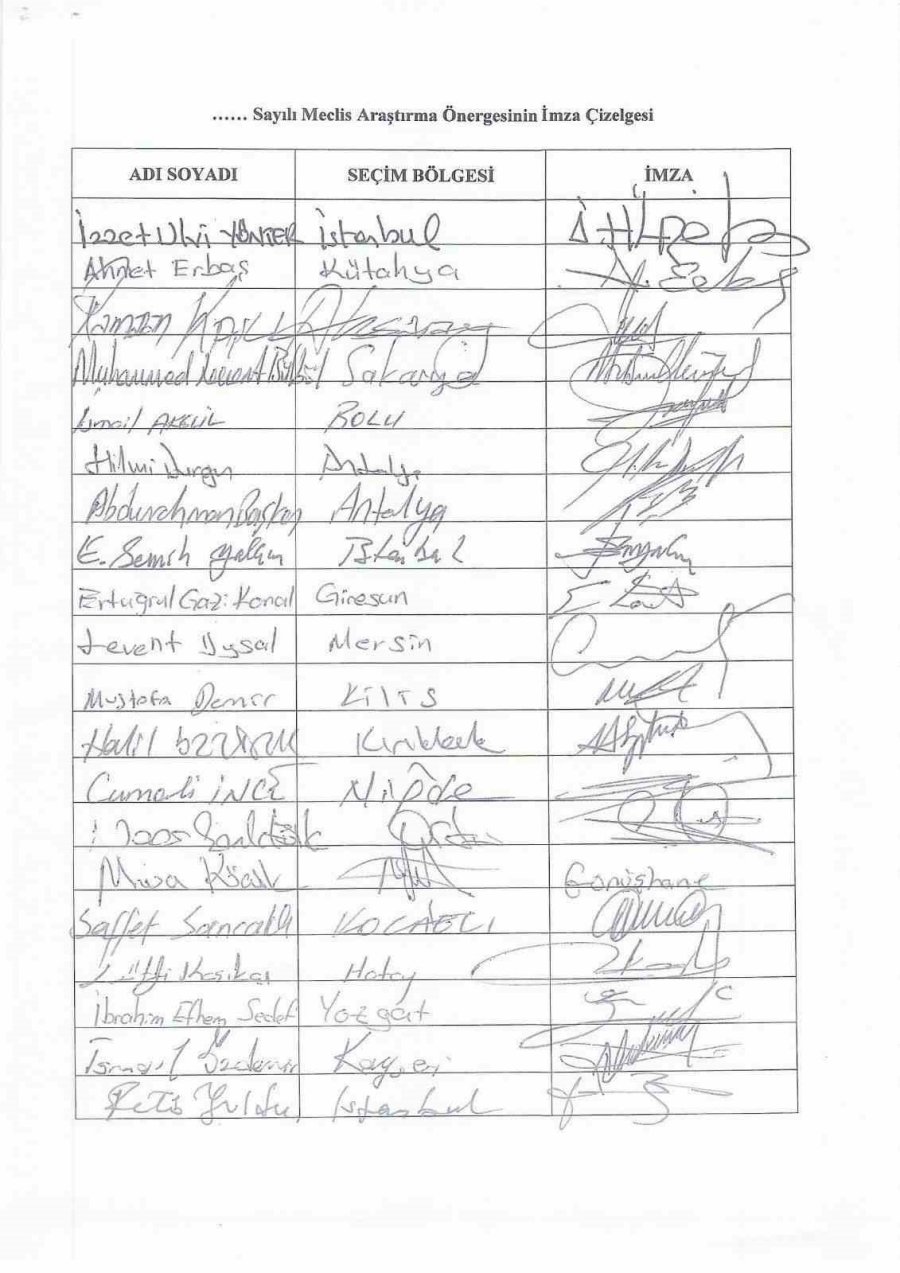 ...... Sayılı Meclis Araştırma Önergesinin İmza Çizelgesi
ADI SOYADI SEÇİM BÖLGESİ İMZA
İzzet Ulvi YÖNTER İstanbul
Ahmet Erbaş Kütahya A. Erbaş
Ramazan Kaşlı Aksaray
Muhammed Levent Bülbül Sakarya
İsmail AKGÜL BOLU
Hilmi Durgun Antalya
Abdurrahman Başkan Antalya
E. Semih Yalçın İstanbul
Ertuğrul Gazi Konal Giresun
Levent Uysal Mersin
Mustafa Demir Kilis
Halil ÖZTÜRK Kırıkkale
Cumali İNCE Niğde
Naci Şanlıtürk Ordu
Musa Küçük Gümüşhane
Saffet Sancaklı KOCAELİ
Lütfi Kaşıkçı Hatay
İbrahim Ethem Sedef Yozgat
İsmail Özdemir Kayseri
Feti Yıldız İstanbul